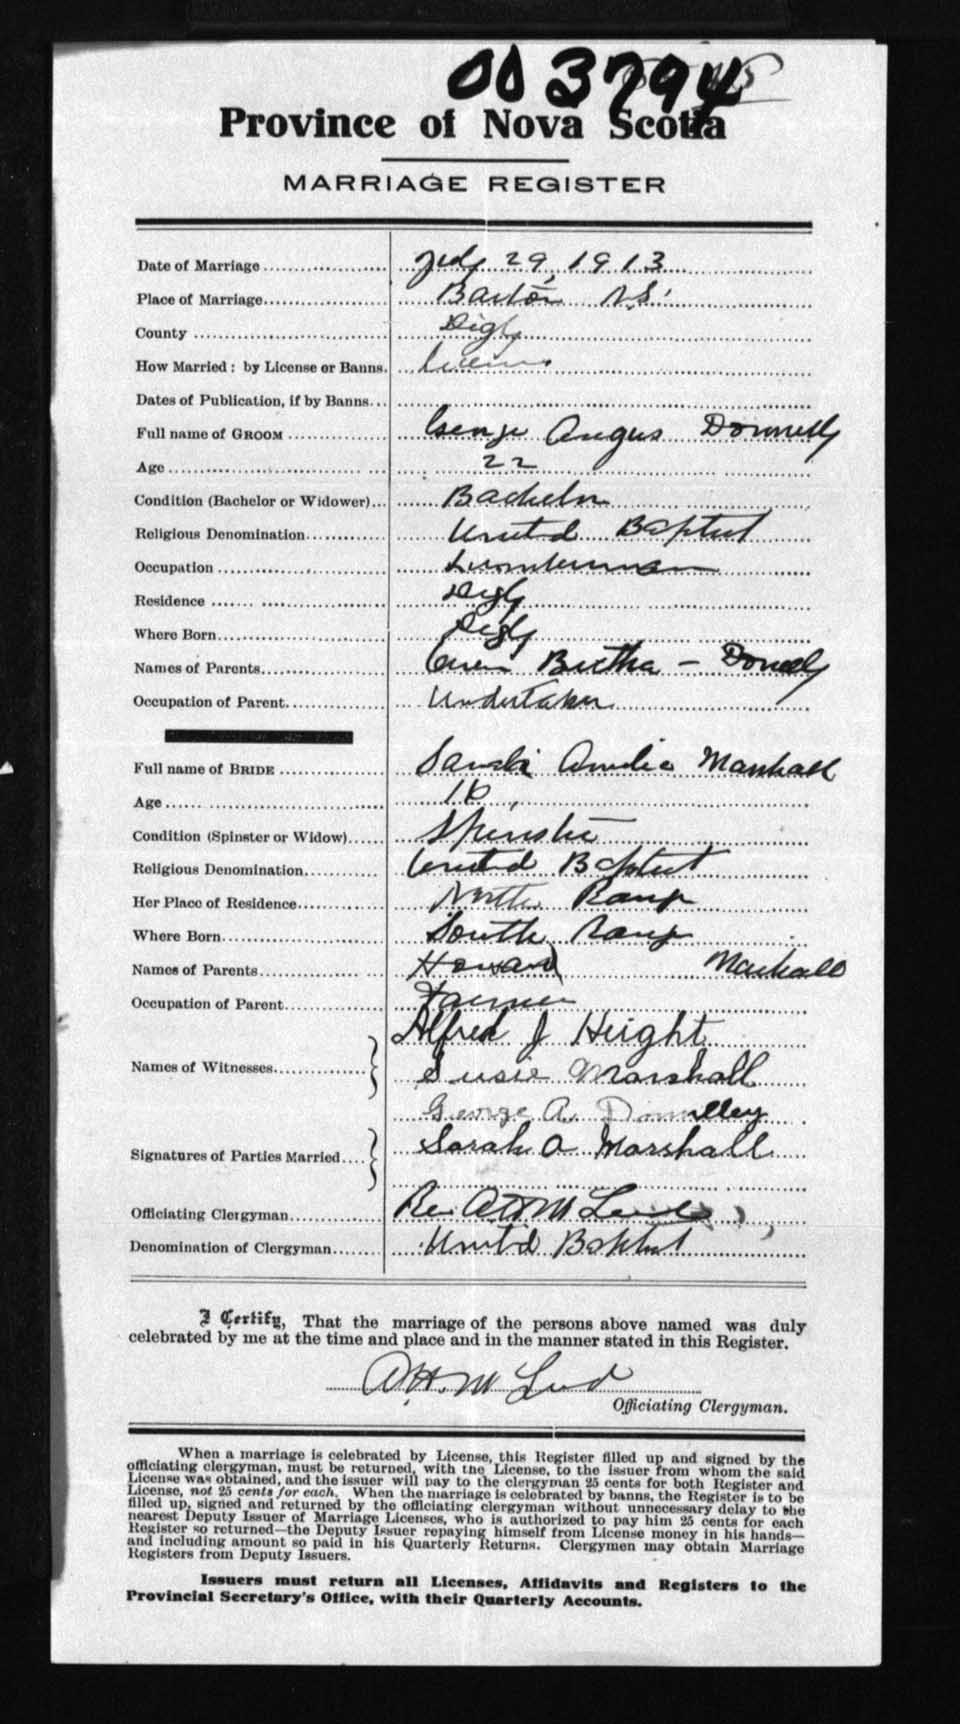 003794
Province of Nova Scotia
MARRIAGE REGISTER
Date of Marriage July 29, 1913
Place of Marriage Barton N.S.
County Digby
How Married: by License or Banns. License
Dates of Publication, if by Banns
Full name of GROOM George Angus Donnelly
Age 22
Condition (Bachelor or Widower) Bachelor
Religious Denomination United Baptist
Occupation Lumberman
Residence Digby
Where Born Digby
Names of Parents Bertha - Donnelly
Occupation of Parent Undertaker
Full name of BRIDE Sarah Amelia Marshall
Age 16
Condition (Spinster or Widow) Spinster
Religious Denomination United Baptist
Her Place of Residence North Range
Where Born South Range
Names of Parents Howard Marshall
Occupation of Parent Farmer
Alfred J Height
Names of Witnesses Susie Marshall
George A. Donnelley
Signatures of Parties Married Sarah A Marshall
Officiating Clergyman Rev
Denomination of Clergyman United Baptist
I Certify, That the marriage of the persons above named was duly
celebrated by me at the time and place and in the manner stated in this Register.
A H. McLeod
Officiating Clergyman.
When a marriage is celebrated by License, this Register filled up and signed by the
officiating clergyman, must be returned, with the License, to the issuer from whom the said
License was obtained, and the issuer will pay to the clergyman 25 cents for both Register and
License, not 25 cents for each. When the marriage is celebrated by banns, the Register is to be
filled up, signed and returned by the officiating clergyman without unnecessary delay to the
nearest Deputy Issuer of Marriage Licenses, who is authorized to pay him 25 cents for each
Register so returned—the Deputy Issuer repaying himself from License money in his hands—
and including amount so paid in his Quarterly Returns. Clergymen may obtain Marriage
Registers from Deputy Issuers.
Issuers must return all Licenses, Affidavits and Registers to the
Provincial Secretary's Office, with their Quarterly Accounts.